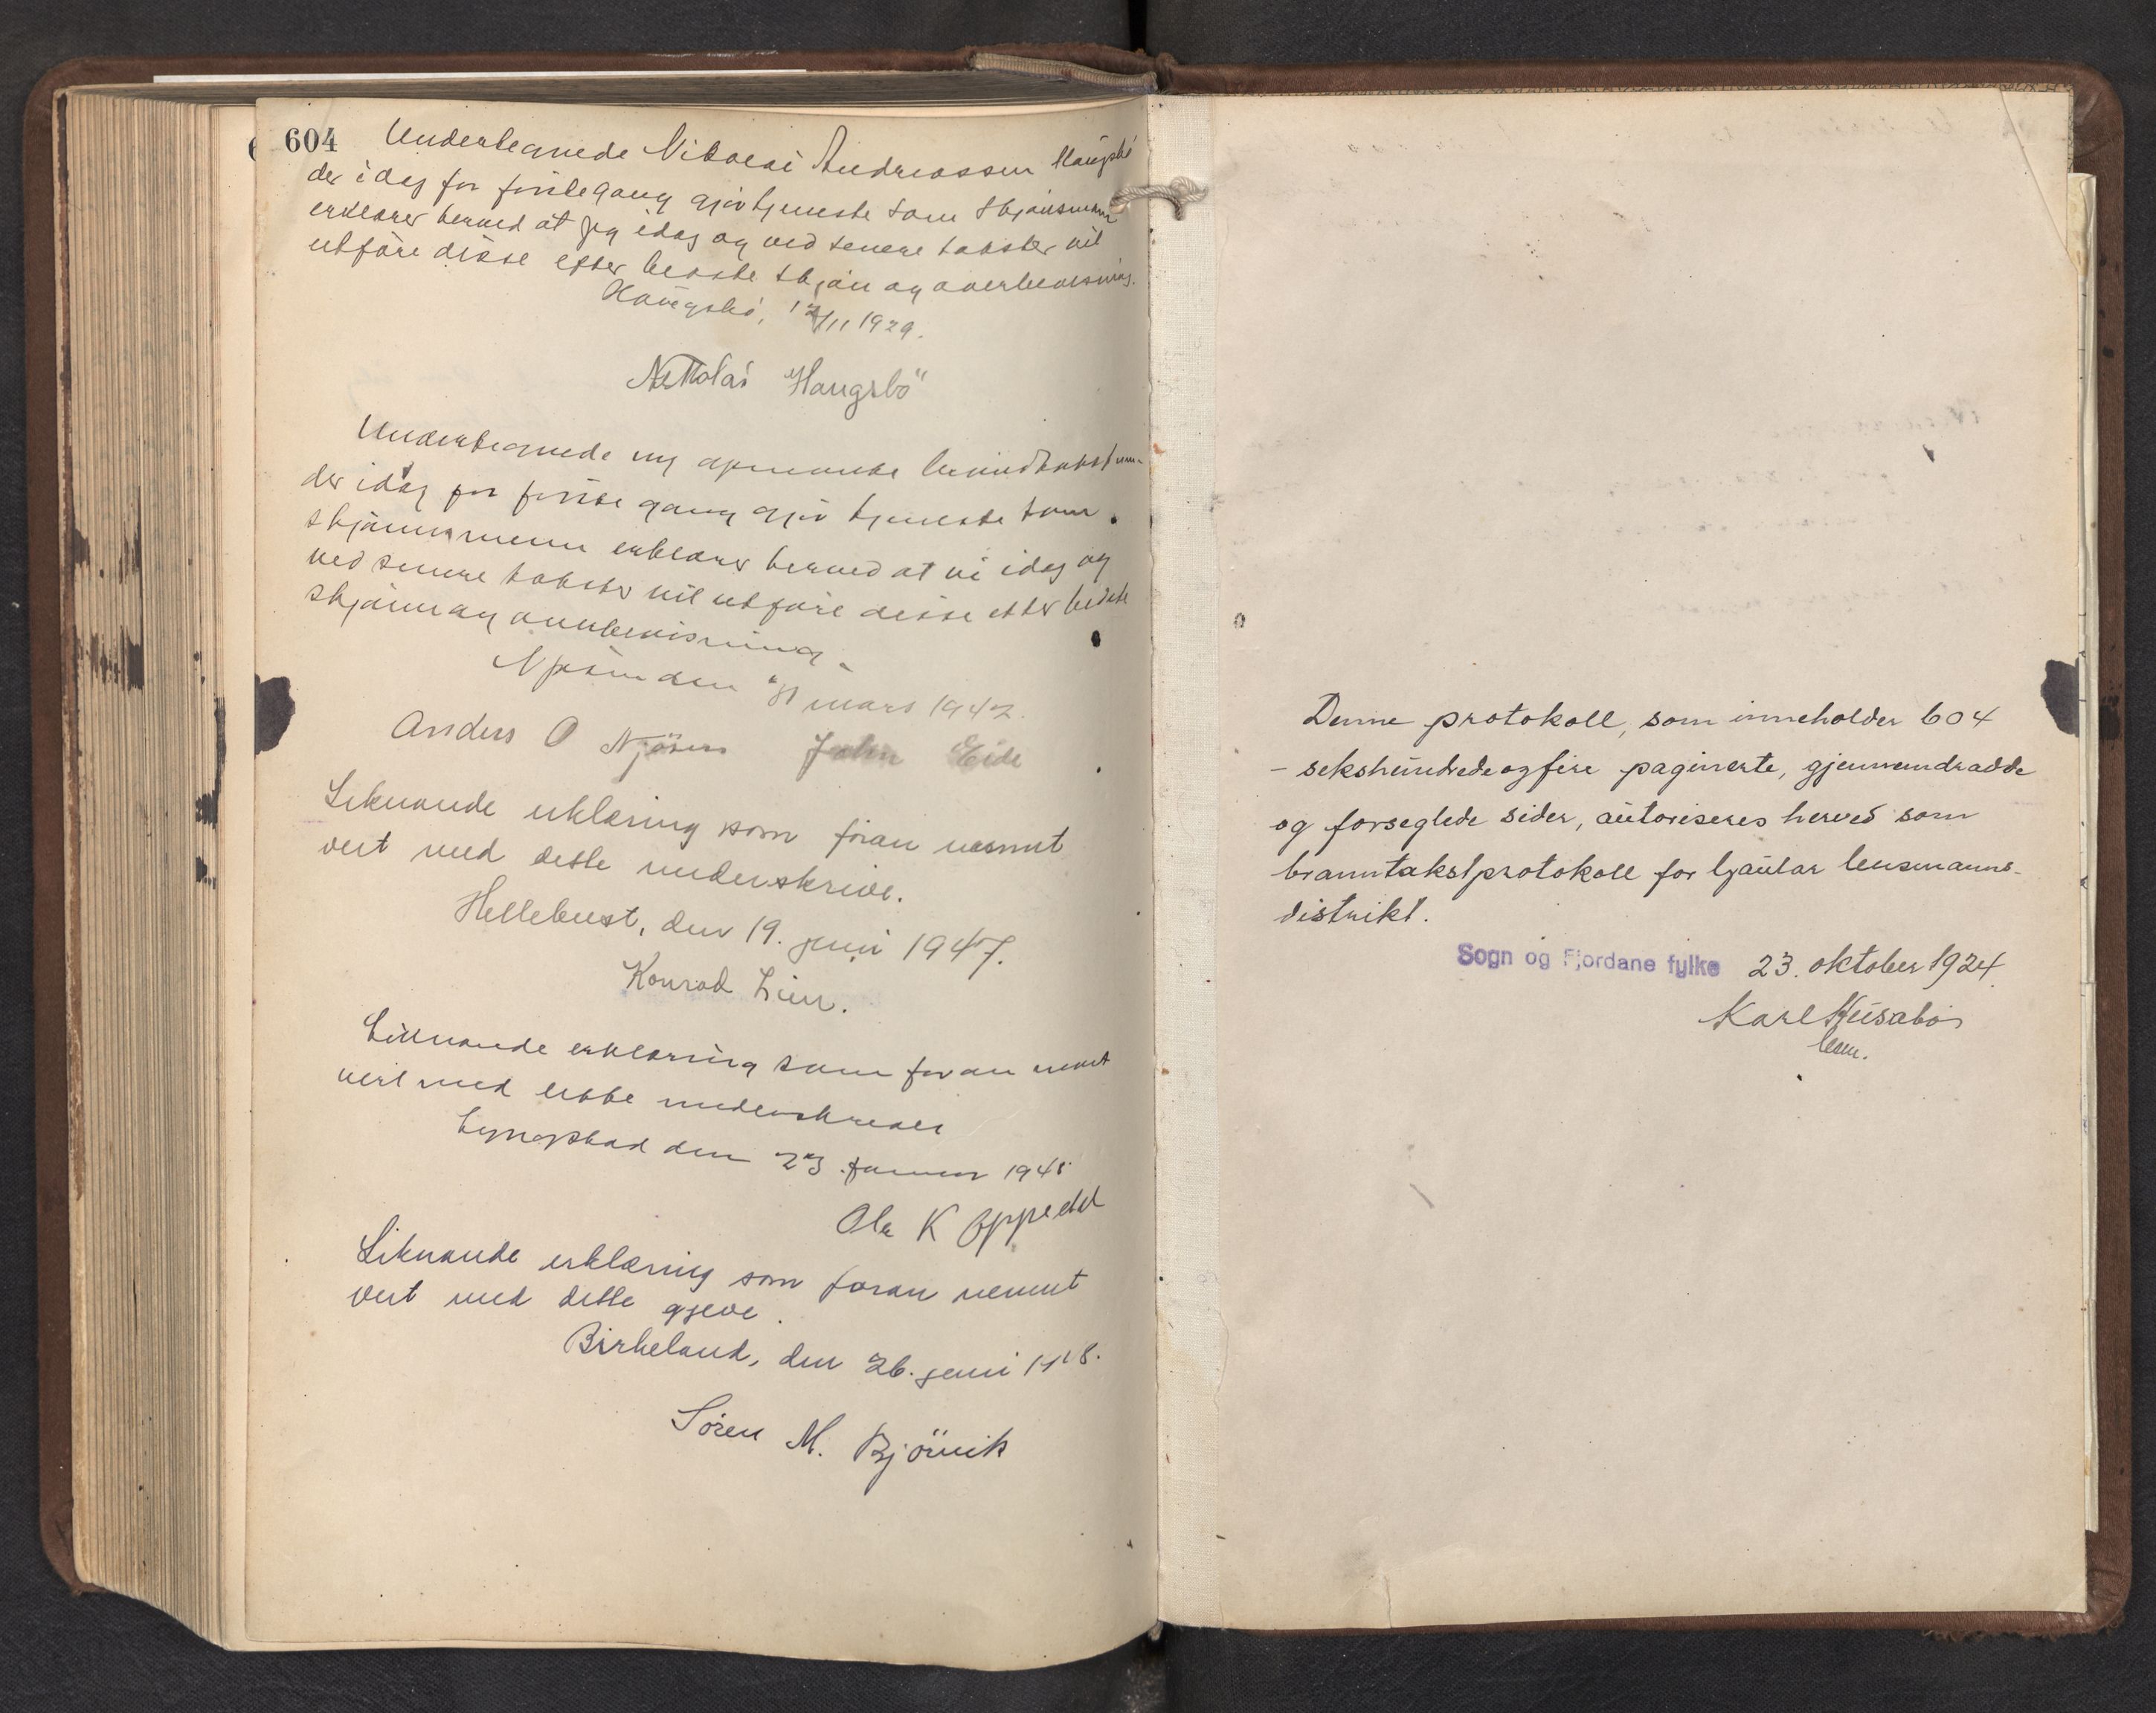 604
Undertegnede Nikolai Andreassen Haugsbö
der idag for förste gang gjör tjeneste som skjönsmann
erklærer herved at jeg idag og ved senere takster vil
utföre disse efter beste skjön og overbevisning.
Haugsbö, 12/11 1929.
Nikolai Haugsbö
Undertegnede ny opnevnte
der idag for förste gang gjör tjeneste som
skjönnsmenn erklærer herved at vi idag og
ved senere takster vil utföre disse etter beste
skjönn og overbevisning.
Njösen den mars 1942.
Anders O Njösen John Eide
Liknande erklæring som föran nemnt
vert med dette underskrive.
Hellebust, den 19. juni 1947.
Konrad Lien.
Liknande erklæring som foran nemt
vert med dette underskreve
Lyngstad den 23. januar 1948
Ola K Oppedal
Liknande erklæring som foran nemnt
vert med dette gjeve.
Birkeland, den 26. juni 1948.
Sören M. Björvik
Denne protokoll, som inneholder 604
- sekshundredeogfire paginerte, gjennemdradde
og forseglede sider, autoriseres herved som
branntakstprotokoll for Gaular lensmanns-
distrikt.
Sogn og Fjordane fylke 23. oktober 1924.
Karl